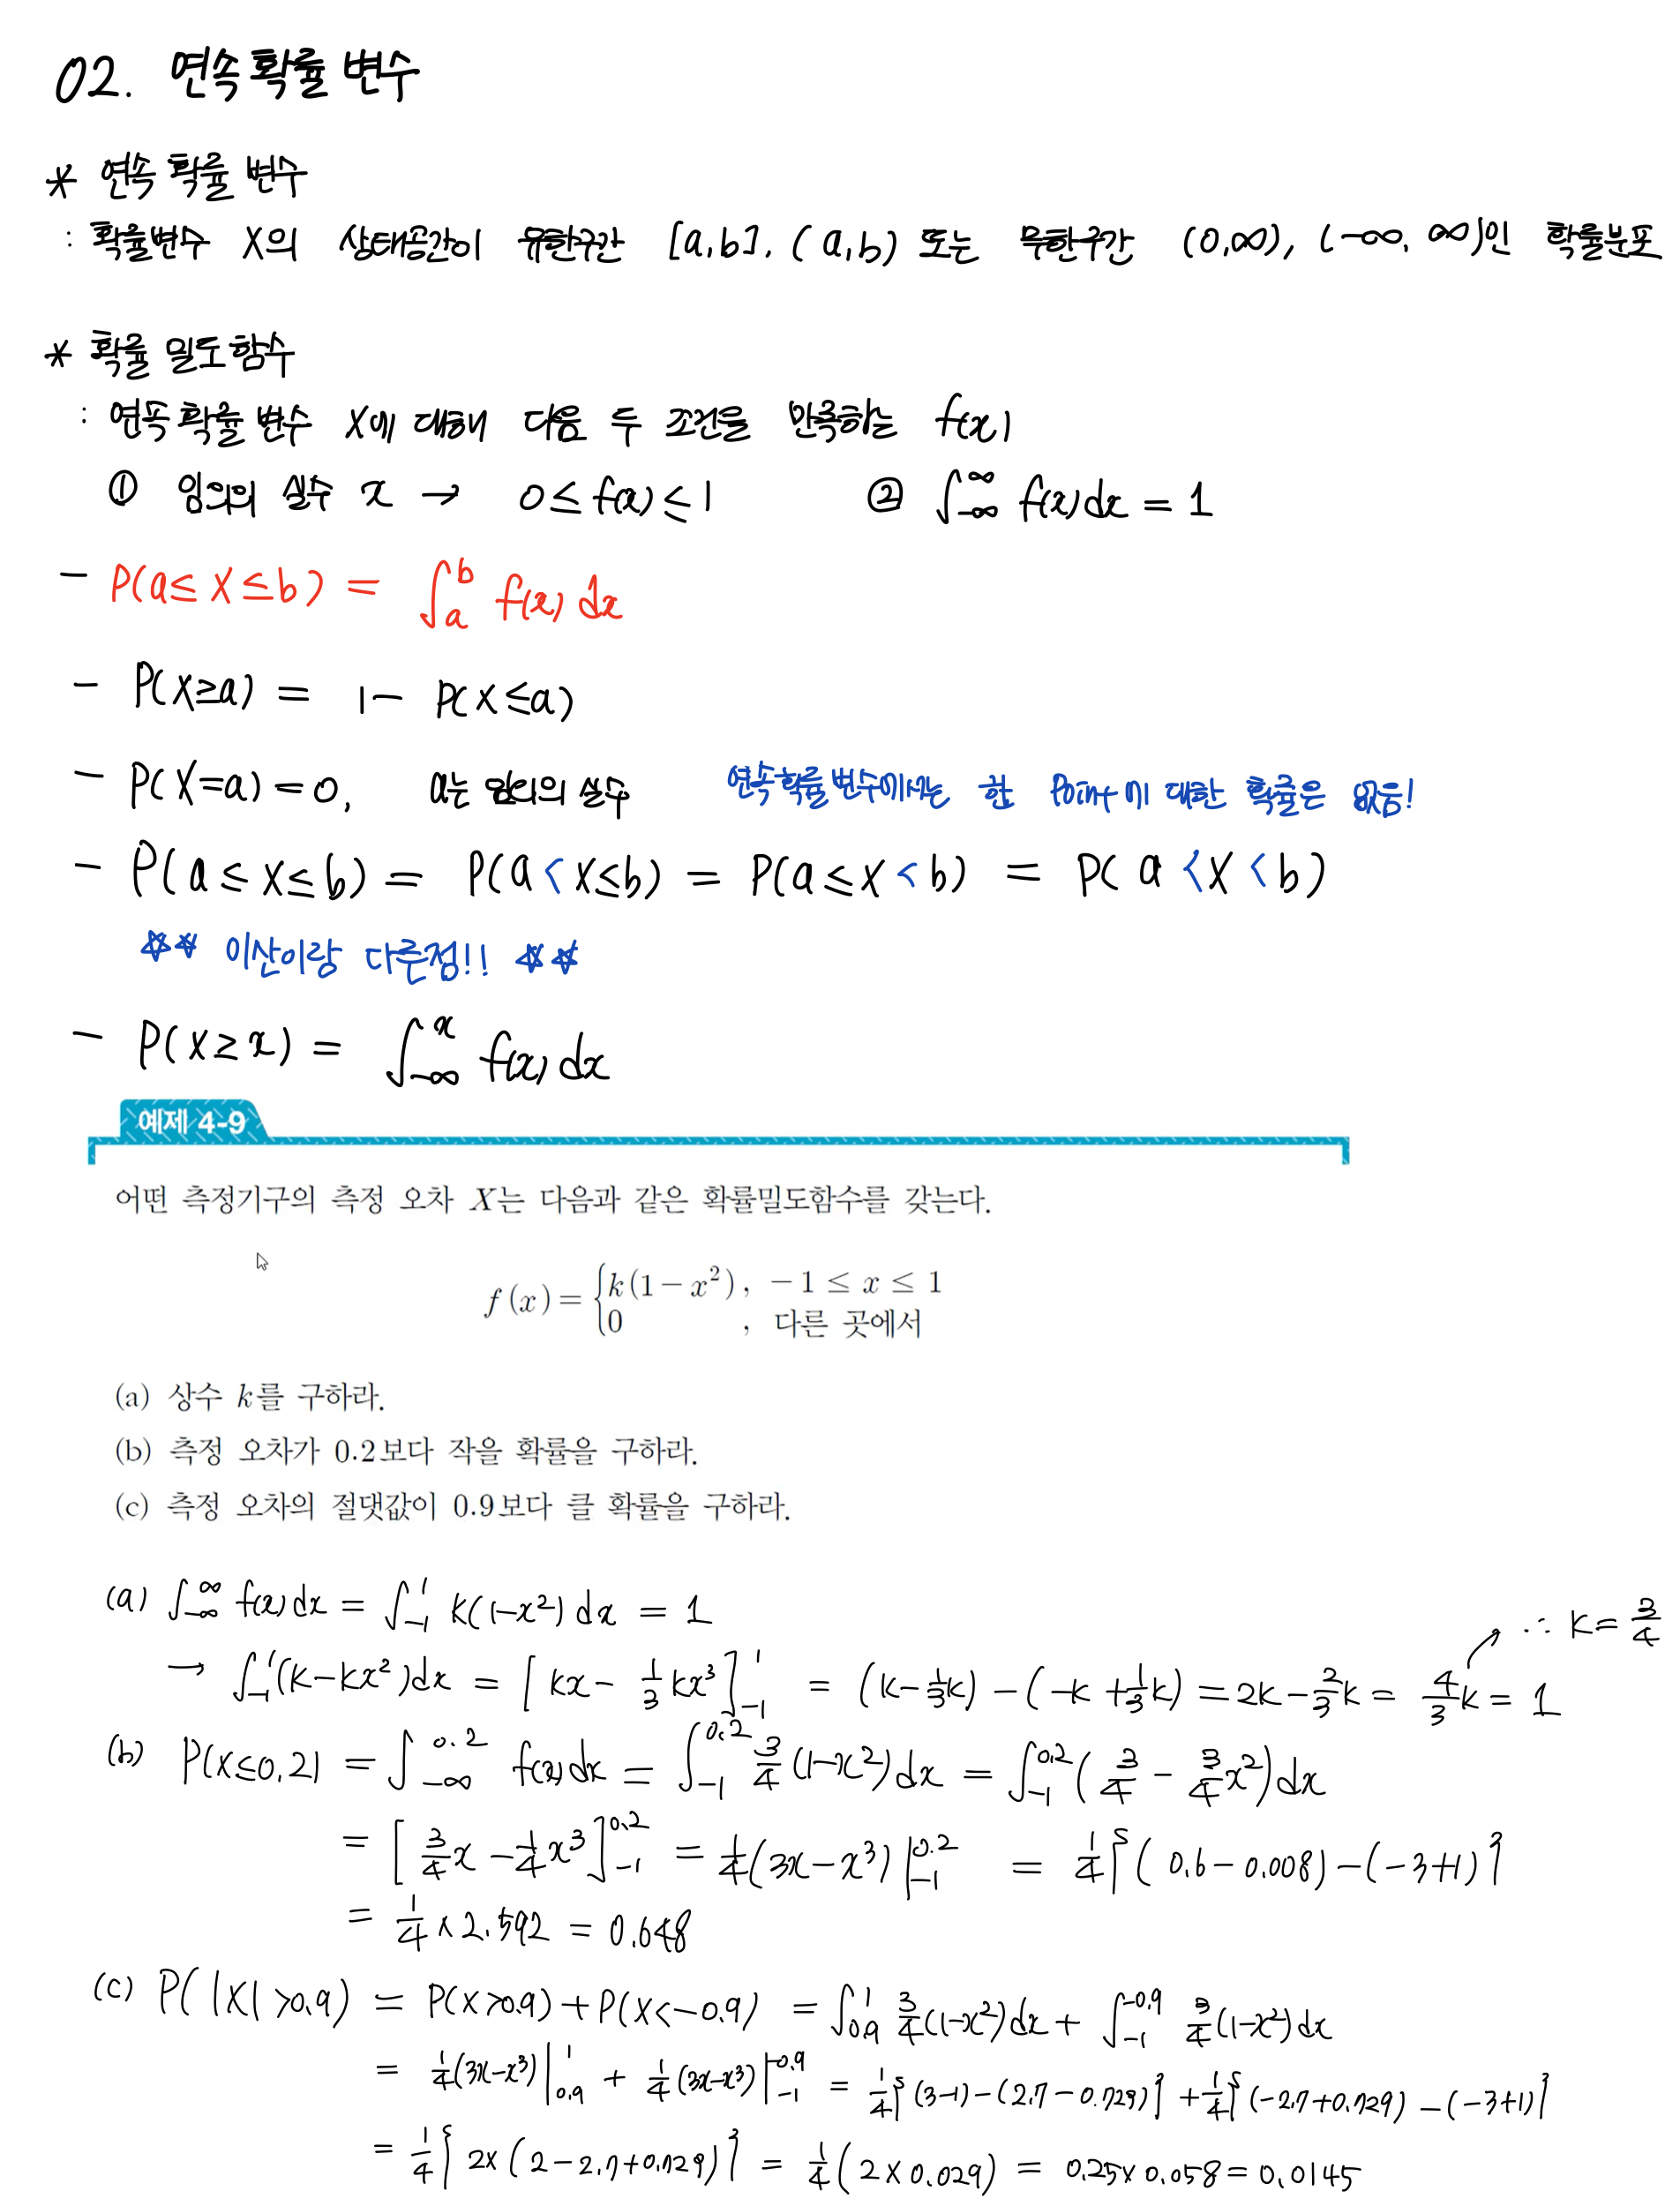 02. 연속 확률 변수
* 연속 확률 변수
: 확률변수 X의 상태공간이 유한구간 [a,b], (a,b) 또는 무한구간 (0,∞), (-∞, ∞)인 확률분포
* 확률 밀도 함수
: 연속 확률 변수 X에 대해 다음 두 조건을 만족하는 f(x)
① 임의의 실수 x → 0≤f(x)≤1 ② ∫_{-∞}^{∞} f(x)dx = 1
- P(a≤X≤b) = ∫_a^b f(x) dx
- P(X≥a) = 1- P(X≤a)
- P(X=a)=0, a는 임의의 실수 연속확률 변수에서는 한 Point에 대한 확률은 없음!
- P(a≤X≤b) = P(a<X≤b) = P(a≤X<b) = P(a<X<b)
☆☆ 이산이랑 다른점!! ☆☆
- P(X≥x) = ∫_{-∞}^x f(x) dx
예제 4-9
어떤 측정기구의 측정 오차 X는 다음과 같은 확률밀도함수를 갖는다.
f(x) = {k(1-x²), -1 ≤ x ≤ 1
0 , 다른 곳에서
(a) 상수 k를 구하라.
(b) 측정 오차가 0.2보다 작을 확률을 구하라.
(c) 측정 오차의 절댓값이 0.9보다 클 확률을 구하라.
(a) ∫_{-∞}^{∞} f(x)dx = ∫_{-1}^{1} k(1-x²)dx = 1
→ ∫_{-1}^{1}(k-kx²)dx = [kx - 1/3 kx³]_{-1}^{1} = (k-1/3k) - (-k+1/3k) = 2k-2/3k = 4/3k = 1 ∴ k=3/4
(b) P(X≤0.2) = ∫_{-∞}^{0.2} f(x)dx = ∫_{-1}^{0.2} 3/4(1-x²)dx = ∫_{-1}^{0.2}(3/4 - 3/4x²)dx
= [3/4x - 1/4x³]_{-1}^{0.2} = 1/4(3x-x³)|_{-1}^{0.2} = 1/4{(0.6-0.008)-(-3+1)}
= 1/4 × 2.592 = 0.648
(c) P(|X|>0.9) = P(X>0.9)+P(X<-0.9) = ∫_{0.9}^{1} 3/4(1-x²)dx + ∫_{-1}^{-0.9} 3/4(1-x²)dx
= 1/4(3x-x³)|_{0.9}^{1} + 1/4(3x-x³)|_{-1}^{-0.9} = 1/4{(3-1)-(2.7-0.729)} + 1/4{(-2.7+0.729)-(-3+1)}
= 1/4{2×(2-2.7+0.729)} = 1/4(2×0.029) = 0.25×0.058=0.0145